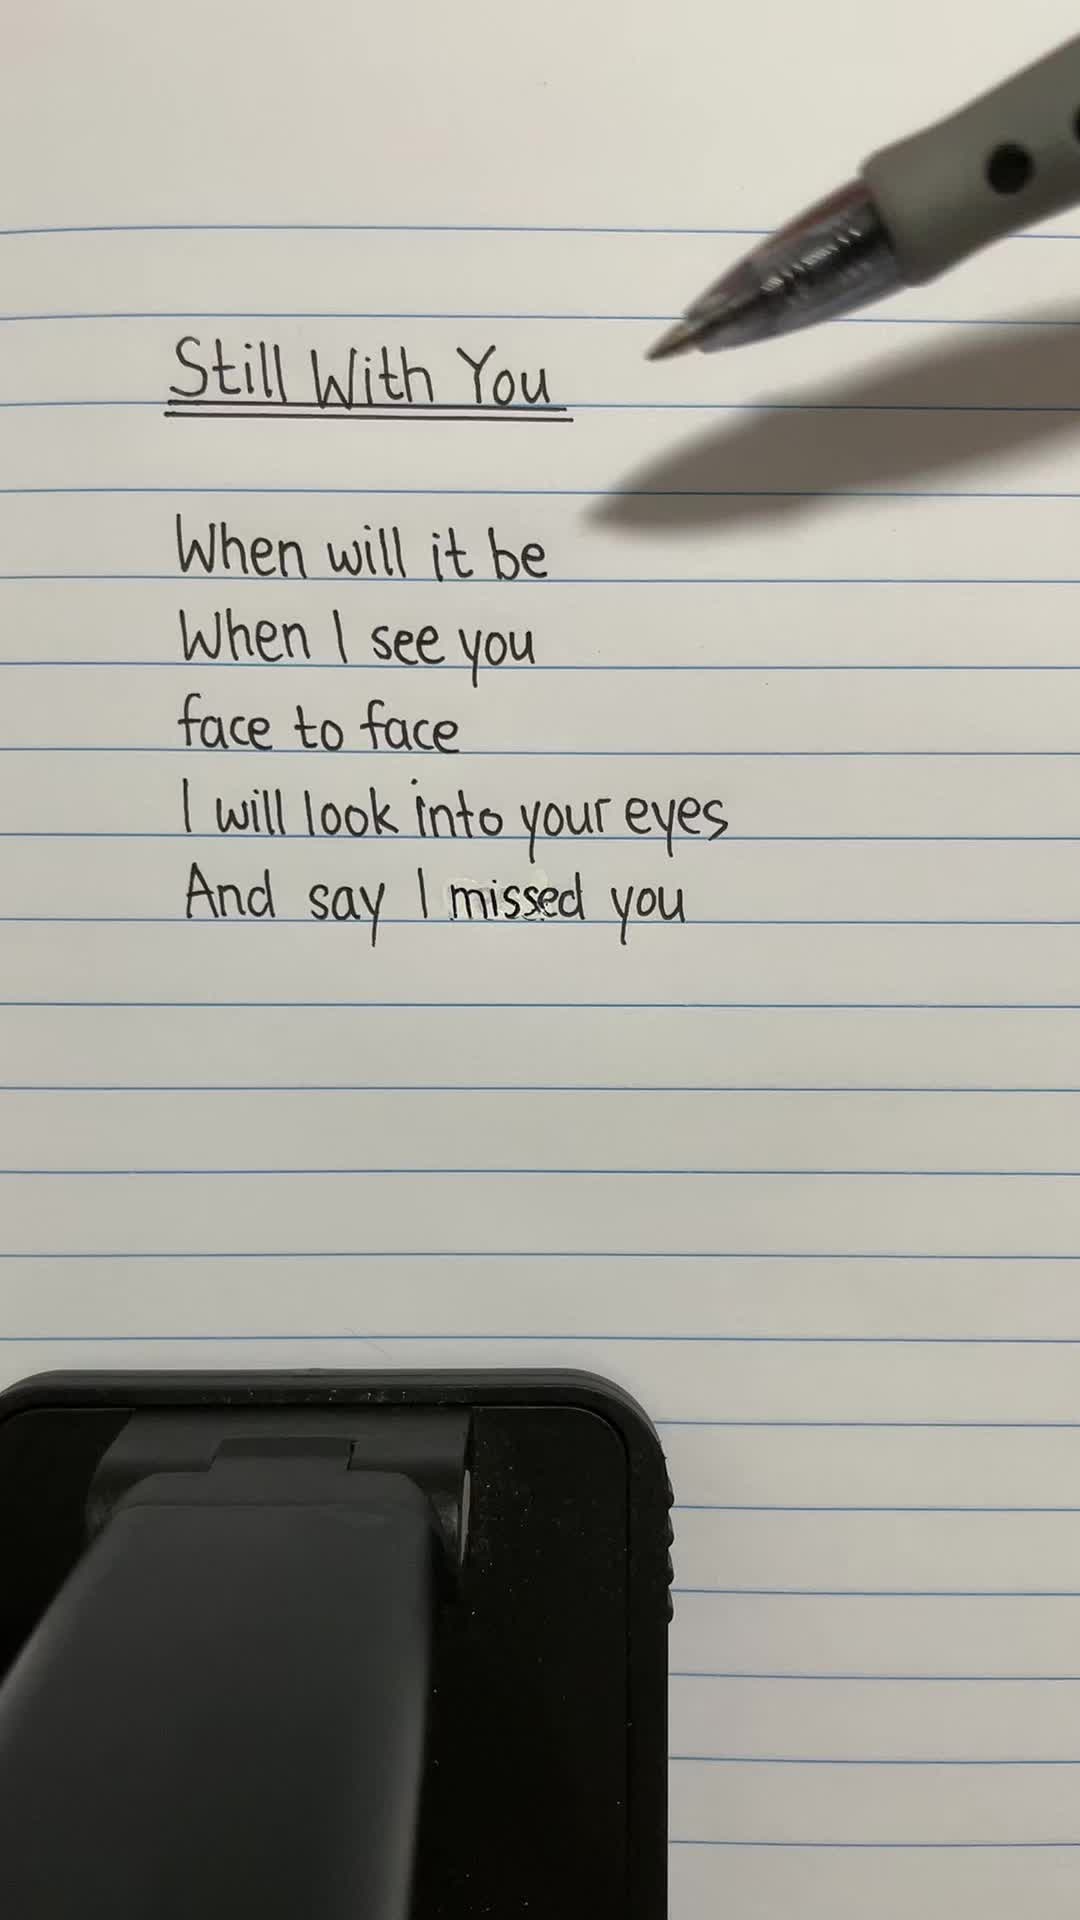 Still With You
When will it be
When I see you
face to face
I will look into your eyes
And say I missed you